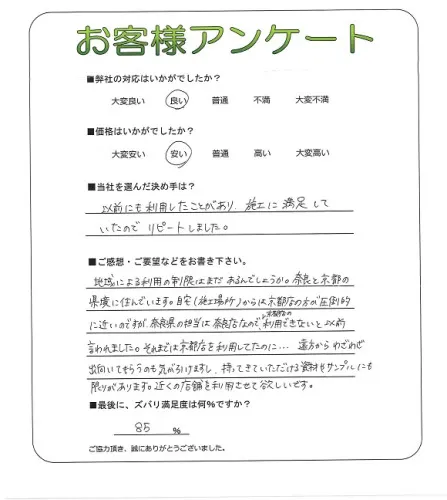 お客様アンケート
■弊社の対応はいかがでしたか？
大変良い 良い 普通 不満 大変不満
■価格はいかがでしたか？
大変安い 安い 普通 高い 大変高い
■当社を選んだ決め手は？
以前にも利用したことがあり、施工に満足して
いたので リピートしました。
■ご感想・ご要望などをお書き下さい。
地域による利用の制限はまだあるんでしょうか。奈良と京都の
県境に住んでいます。自宅(施工場所)からは京都店の方が圧倒的
に近いのですが、奈良県の担当は奈良店なので、京都店の利用できないと以前
言われました。それまでは京都店を利用してたのに… 遠方からわざわざ
出向いてもらうのも気がひけますし、持ってきていただける資材やサンプルにも
限りがあります。近くの店舗を利用させて欲しいです。
■最後に、ズバリ満足度は何％ですか？
85 ％
ご協力頂き、誠にありがとうございました。